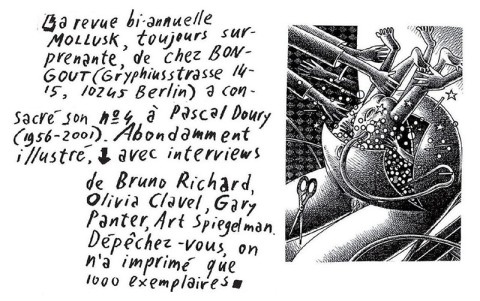 La revue bi-annuelle
MOLLUSK, toujours sur-
prenante, de chez BON-
GOUT (Gryphiusstrasse 14-
15, 10245 Berlin) a con-
sacré son nº 4, à Pascal Doury
(1956-2001). Abondamment
illustré, avec interviews
de Bruno Richard,
Olivia Clavel, Gary
Panter, Art Spiegelman.
Dépêchez-vous, on
n'a imprimé que
1000 exemplaires